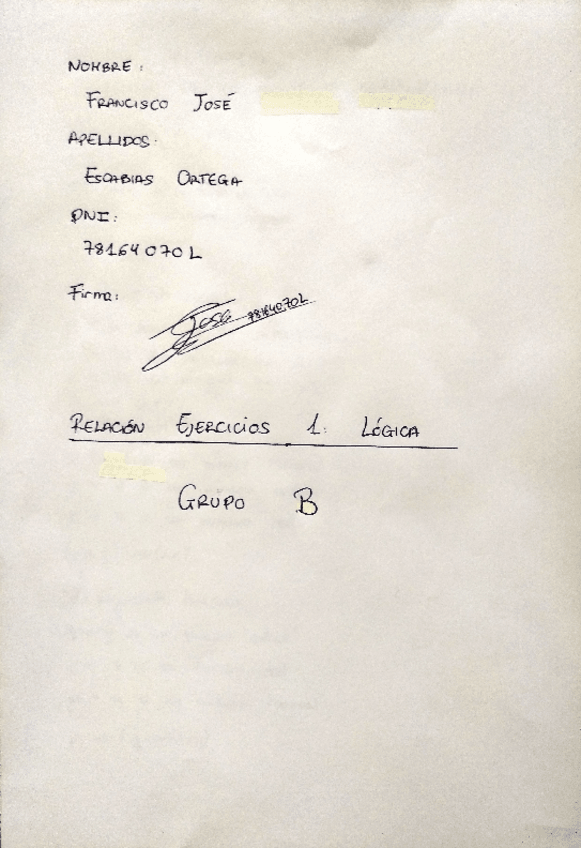 NOMBRE:
FRANCISCO JOSÉ
APELLIDOS:
ESCABIAS ORTEGA
DNI:
78164070L
Firma:
José 78164070L
RELACIÓN EJERCICIOS 1: LÓGICA
GRUPO B